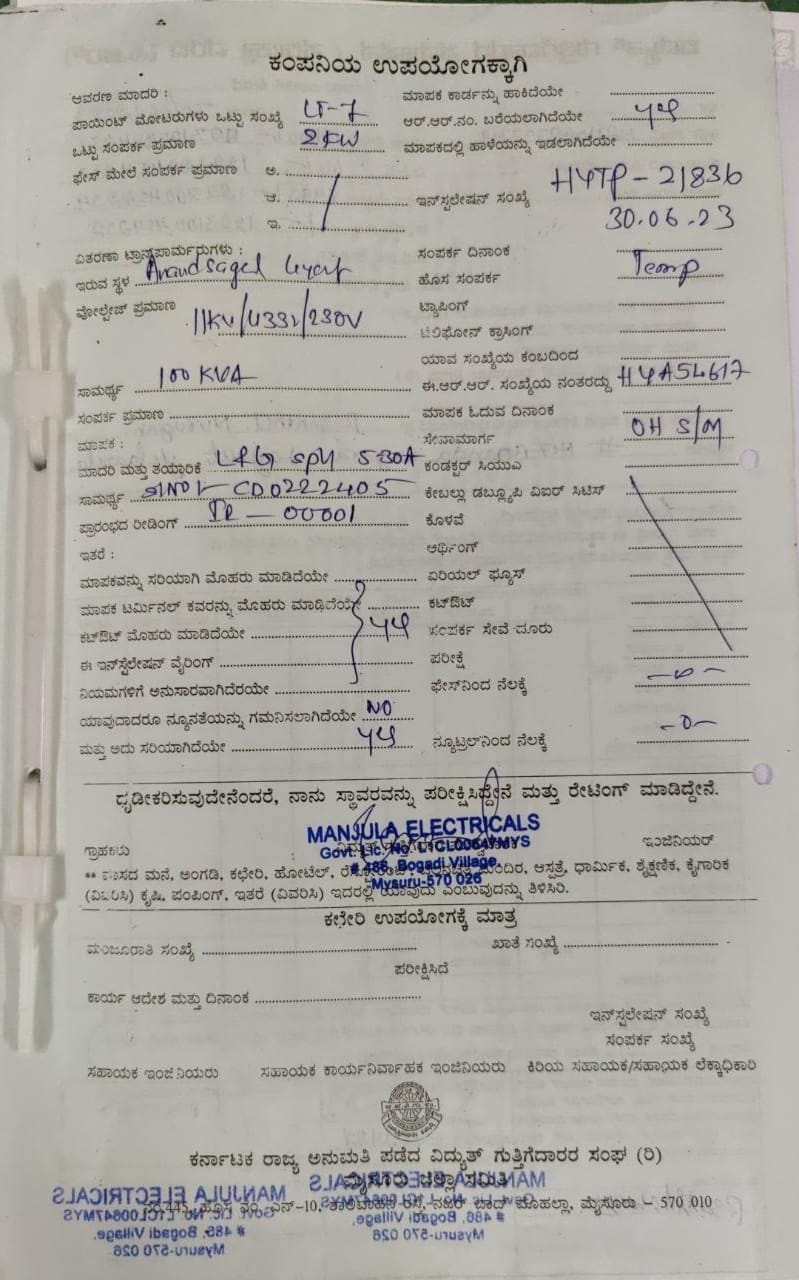 ಕಂಪನಿಯ ಉಪಯೋಗಕ್ಕಾಗಿ
ಆವರಣ ಮಾದರಿ :
ಮಾಪಕ ಕಾರ್ಡನ್ನು ಹಾಕಿದೆಯೇ
ಪಾಯಿಂಟ್ ಮೋಟರುಗಳು ಒಟ್ಟು ಸಂಖ್ಯೆ LT-7
ಆರ್.ಆರ್.ನಂ. ಬರೆಯಲಾಗಿದೆಯೇ
ಒಟ್ಟು ಸಂಪರ್ಕ ಪ್ರಮಾಣ 2KW
ಮಾಪಕದಲ್ಲಿ ಹಾಳೆಯನ್ನು ಇಡಲಾಗಿದೆಯೇ
ಫೇಸ್ ಮೇಲೆ ಸಂಪರ್ಕ ಪ್ರಮಾಣ ಅ.
ಆ.
ಇ.
ಇನ್‌ಸ್ಟಲೇಷನ್ ಸಂಖ್ಯೆ HYTP-21836
30.06.23
ವಿತರಣಾ ಟ್ರಾನ್ಸ್‌ಫಾರ್ಮರುಗಳು :
ಸಂಪರ್ಕ ದಿನಾಂಕ
ಇರುವ ಸ್ಥಳ
ಹೊಸ ಸಂಪರ್ಕ Temp
ವೋಲ್ಟೇಜ್ ಪ್ರಮಾಣ 11KV/433V/230V
ಟ್ಯಾಪಿಂಗ್
ಟೆಲಿಫೋನ್ ಕ್ರಾಸಿಂಗ್
ಯಾವ ಸಂಖ್ಯೆಯ ಕಂಬದಿಂದ
ಸಾಮರ್ಥ್ಯ 100 KVA
ಈ.ಆರ್.ಆರ್. ಸಂಖ್ಯೆಯ ನಂತರದ್ದು HYA54617
ಸಂಪರ್ಕ ಪ್ರಮಾಣ
ಮಾಪಕ ಓದುವ ದಿನಾಂಕ
ಮಾಪಕ :
ಸೇವಾಮಾರ್ಗ OH S/M
ಮಾದರಿ ಮತ್ತು ತಯಾರಿಕೆ L&G SPH 5-30A
ಕಂಡಕ್ಟರ್ ಸಿಯುಎ
ಸಾಮರ್ಥ್ಯ CD0222405
ಕೇಬಲ್ಲು ಡಬ್ಲ್ಯೂಪಿ ವಿಐರ್ ಸಿಟಿಸ್
ಪ್ರಾರಂಭದ ರೀಡಿಂಗ್ IR-00001
ಕೊಳವೆ
ಇತರೆ :
ಆರ್ಥಿಂಗ್
ಮಾಪಕವನ್ನು ಸರಿಯಾಗಿ ಮೊಹರು ಮಾಡಿದೆಯೇ
ಏರಿಯಲ್ ಫ್ಯೂಸ್
ಮಾಪಕ ಟರ್ಮಿನಲ್ ಕವರನ್ನು ಮೊಹರು ಮಾಡಿದೆಯೇ
ಕಟ್‌ಔಟ್
ಕಟ್‌ಔಟ್ ಮೊಹರು ಮಾಡಿದೆಯೇ
ಸಂಪರ್ಕ ಸೇವೆ ದೂರು
ಈ ಇನ್‌ಸ್ಟೆಲೇಷನ್ ವೈರಿಂಗ್
ಪರೀಕ್ಷೆ
ನಿಯಮಗಳಿಗೆ ಅನುಸಾರವಾಗಿದೆರಯೇ
ಫೇಸ್‌ನಿಂದ ನೆಲಕ್ಕೆ -0-
ಯಾವುದಾದರೂ ನ್ಯೂನತೆಯನ್ನು ಗಮನಿಸಲಾಗಿದೆಯೇ NO
ಮತ್ತು ಅದು ಸರಿಯಾಗಿದೆಯೇ
ನ್ಯೂಟ್ರಲ್‌ನಿಂದ ನೆಲಕ್ಕೆ -0-
ಧೃಡೀಕರಿಸುವುದೇನೆಂದರೆ, ನಾನು ಸ್ಥಾವರವನ್ನು ಪರೀಕ್ಷಿಸಿದ್ದೇನೆ ಮತ್ತು ರೇಟಿಂಗ್ ಮಾಡಿದ್ದೇನೆ.
MANJULA ELECTRICALS
Govt. Lic. No. L1CL00647MYS
# 486, Bogadi Village,
Mysuru-570 026
ಗ್ರಾಹಕರು
ಇಂಜಿನಿಯರ್
** ವಾಸದ ಮನೆ, ಅಂಗಡಿ, ಕಛೇರಿ, ಹೋಟೆಲ್, ಮಂದಿರ, ಆಸ್ಪತ್ರೆ, ಧಾರ್ಮಿಕ, ಶೈಕ್ಷಣಿಕ, ಕೈಗಾರಿಕ
(ವಿವರಿಸಿ) ಕೃಷಿ, ಪಂಪಿಂಗ್, ಇತರೆ (ವಿವರಿಸಿ) ಇದರಲ್ಲಿ ಯಾವುದು ಎಂಬುವುದನ್ನು ತಿಳಿಸಿರಿ.
ಕಛೇರಿ ಉಪಯೋಗಕ್ಕೆ ಮಾತ್ರ
ಮಂಜೂರಾತಿ ಸಂಖ್ಯೆ
ಖಾತೆ ಸಂಖ್ಯೆ
ಪರೀಕ್ಷಿಸಿದೆ
ಕಾರ್ಯ ಆದೇಶ ಮತ್ತು ದಿನಾಂಕ
ಇನ್‌ಸ್ಟಲೇಷನ್ ಸಂಖ್ಯೆ
ಸಂಪರ್ಕ ಸಂಖ್ಯೆ
ಸಹಾಯಕ ಇಂಜಿನಿಯರು ಸಹಾಯಕ ಕಾರ್ಯನಿರ್ವಾಹಕ ಇಂಜಿನಿಯರು ಕಿರಿಯ ಸಹಾಯಕ/ಸಹಾಯಕ ಲೆಕ್ಕಾಧಿಕಾರಿ
ಕರ್ನಾಟಕ ರಾಜ್ಯ ಅನುಮತಿ ಪಡೆದ ವಿದ್ಯುತ್ ಗುತ್ತಿಗೆದಾರರ ಸಂಘ (ರಿ)
ಮೈಸೂರು ಜಿಲ್ಲಾ ಸಮಿತಿ
ನಂ.445, ಹೊಸ ನಂ. ಎನ್-10, ಮೊಹಲ್ಲಾ, ಮೈಸೂರು - 570 010
MANJULA ELECTRICALS
Govt. Lic. No. L1CL00647MYS
# 486, Bogadi Village,
Mysuru-570 026
MANJULA ELECTRICALS
Govt. Lic. No. L1CL00647MYS
# 486, Bogadi Village,
Mysuru-570 026